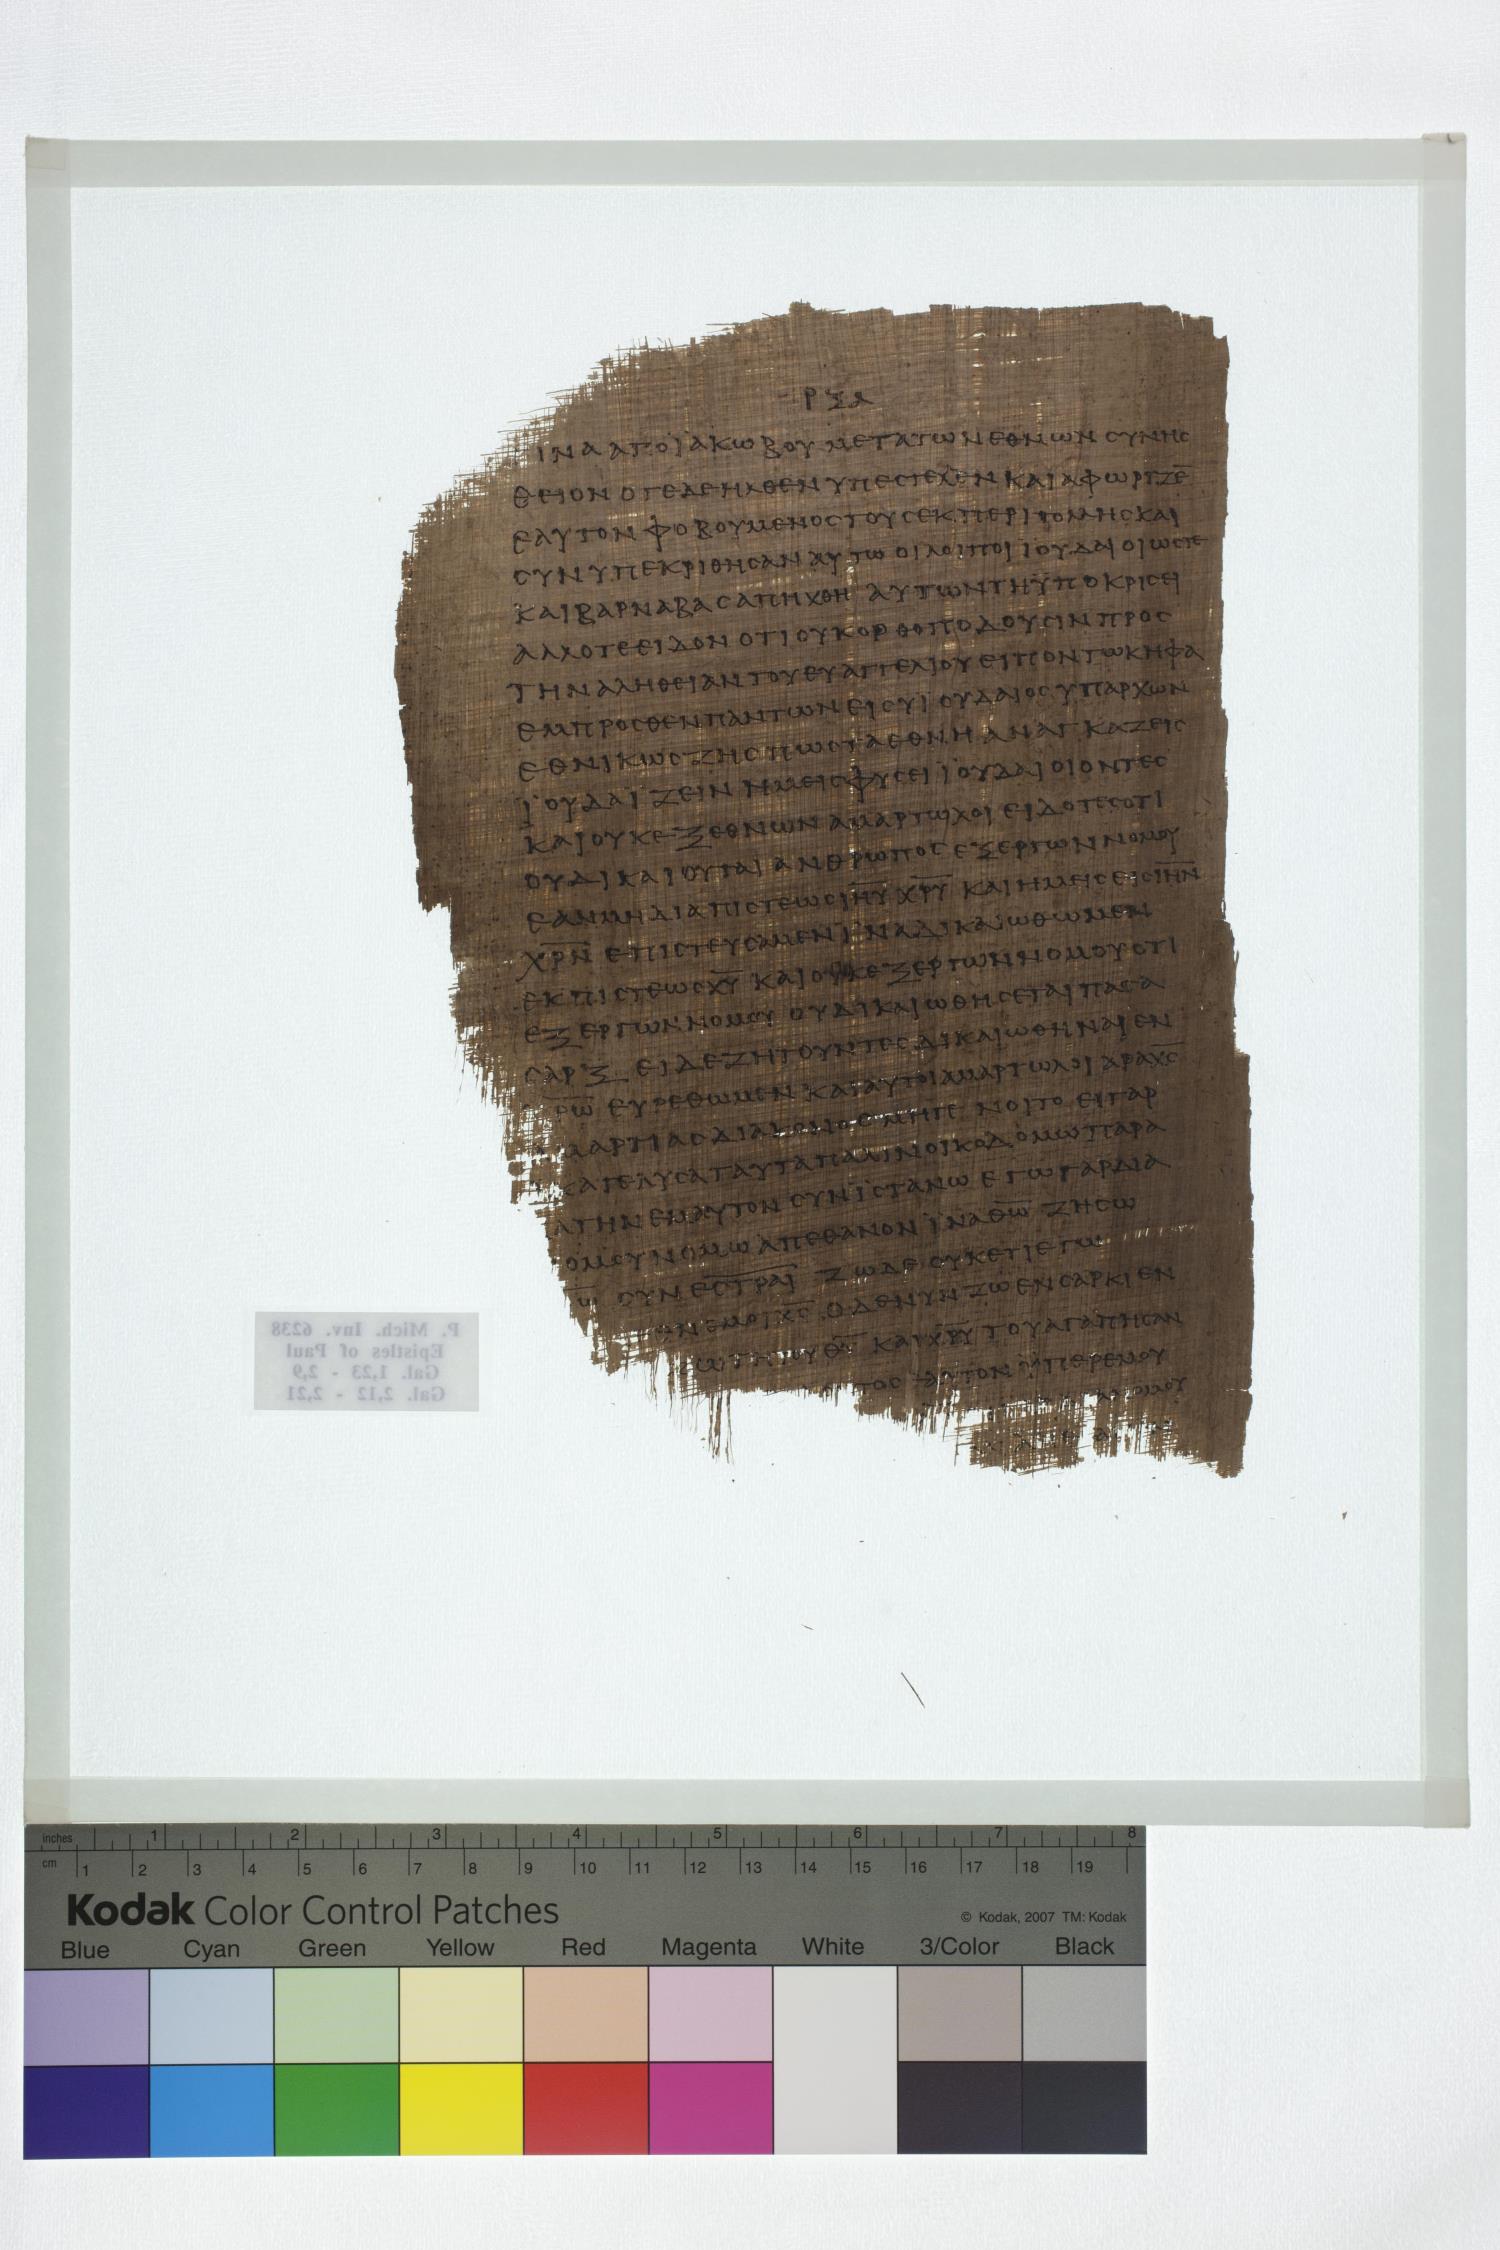 ΡΞΑ
ΙΝΑ ΑΠΟ ΪΑΚΩΒΟΥ ΜΕΤΑ ΤΩΝ ΕΘΝΩΝ ΣΥΝΗΣ
ΘΕΙΟΝ ΟΤΕ ΔΕ ΗΛΘΕΝ ΥΠΕΣΤΕΛΛΕΝ ΚΑΙ ΑΦΩΡΙΖΕ̅
ΕΑΥΤΟΝ ΦΟΒΟΥΜΕΝΟΣ ΤΟΥΣ ΕΚ ΠΕΡΙΤΟΜΗΣ ΚΑΙ
ΣΥΝΥΠΕΚΡΙΘΗΣΑΝ ΑΥΤΩ ΟΙ ΛΟΙΠΟΙ ΙΟΥΔΑΙΟΙ ΩΣΤΕ
ΚΑΙ ΒΑΡΝΑΒΑΣ ΑΠΗΧΘΗ ΑΥΤΩΝ ΤΗ ΥΠΟΚΡΙΣΕΙ
ΑΛΛ ΟΤΕ ΕΙΔΟΝ ΟΤΙ ΟΥΚ ΟΡΘΟΠΟΔΟΥΣΙΝ ΠΡΟΣ
ΤΗΝ ΑΛΗΘΕΙΑΝ ΤΟΥ ΕΥΑΓΓΕΛΙΟΥ ΕΙΠΟΝ ΤΩ ΚΗΦΑ
ΕΜΠΡΟΣΘΕΝ ΠΑΝΤΩΝ ΕΙ ΣΥ ΙΟΥΔΑΙΟΣ ΥΠΑΡΧΩΝ
ΕΘΝΙΚΩΣ ΖΗΣ ΠΩΣ ΤΑ ΕΘΝΗ ΑΝΑΓΚΑΖΕΙΣ
ΪΟΥΔΑΪΖΕΙΝ ΗΜΕΙΣ ΦΥΣΕΙ ΪΟΥΔΑΙΟΙ ΟΝΤΕΣ
ΚΑΙ ΟΥΚ ΕΞ ΕΘΝΩΝ ΑΜΑΡΤΩΛΟΙ ΕΙΔΟΤΕΣ ΟΤΙ
ΟΥ ΔΙΚΑΙΟΥΤΑΙ ΑΝΘΡΩΠΟΣ ΕΞ ΕΡΓΩΝ ΝΟΜΟΥ
ΕΑΝ ΜΗ ΔΙΑ ΠΙΣΤΕΩΣ Ι̅Η̅Υ̅ Χ̅Ρ̅Υ̅ ΚΑΙ ΗΜΕΙΣ ΕΙΣ Ι̅Η̅Ν̅
Χ̅Ρ̅Ν̅ ΕΠΙΣΤΕΥΣΑΜΕΝ ΪΝΑ ΔΙΚΑΙΩΘΩΜΕΝ
ΕΚ ΠΙΣΤΕΩΣ Χ̅Υ̅ ΚΑΙ ΟΥΚ ΕΞ ΕΡΓΩΝ ΝΟΜΟΥ ΟΤΙ
ΕΞ ΕΡΓΩΝ ΝΟΜΟΥ ΟΥ ΔΙΚΑΙΩΘΗΣΕΤΑΙ ΠΑΣΑ
ΣΑΡΞ ΕΙ ΔΕ ΖΗΤΟΥΝΤΕΣ ΔΙΚΑΙΩΘΗΝΑΙ ΕΝ
Ρ̅Ω̅ ΕΥΡΕΘΩΜΕΝ ΚΑΙ ΑΥΤΟΙ ΑΜΑΡΤΩΛΟΙ ΑΡΑ Χ̅Σ̅
ΜΑΡΤΙΑΣ ΔΙΑΚΟΝΟΣ ΜΗ ΓΕΝΟΙΤΟ ΕΙ ΓΑΡ
ΚΑΤΕΛΥΣΑ ΤΑΥΤΑ ΠΑΛΙΝ ΟΙΚΟΔΟΜΩ ΠΑΡΑ
ΑΤΗΝ ΕΜΑΥΤΟΝ ΣΥΝΪΣΤΑΝΩ ΕΓΩ ΓΑΡ ΔΙΑ
ΟΜΟΥ ΝΟΜΩ ΑΠΕΘΑΝΟΝ ΪΝΑ Θ̅Ω̅ ΖΗΣΩ
Ω̅ ΣΥΝΕΣ̅Τ̅Ρ̅Α̅Ι̅ ΖΩ ΔΕ ΟΥΚΕΤΙ ΕΓΩ
ΕΝ ΕΜΟΙ Χ̅Σ̅ Ο ΔΕ ΝΥΝ ΖΩ ΕΝ ΣΑΡΚΙ ΕΝ
ΖΩ ΤΗ ΤΟΥ Θ̅Υ̅ ΚΑΙ Χ̅Ρ̅Υ̅ ΤΟΥ ΑΓΑΠΗΣΑΝ
ΤΟΣ ΕΑΥΤΟΝ ΥΠΕΡ ΕΜΟΥ
ΝΟΜΟΥ
P. Mich. Inv. 6238
Epistles of Paul
Gal. 1,23 - 2,9
Gal. 2,12 - 2,21
inches 1 2 3 4 5 6 7 8
cm 1 2 3 4 5 6 7 8 9 10 11 12 13 14 15 16 17 18 19
Kodak Color Control Patches
© Kodak, 2007 TM: Kodak
Blue Cyan Green Yellow Red Magenta White 3/Color Black